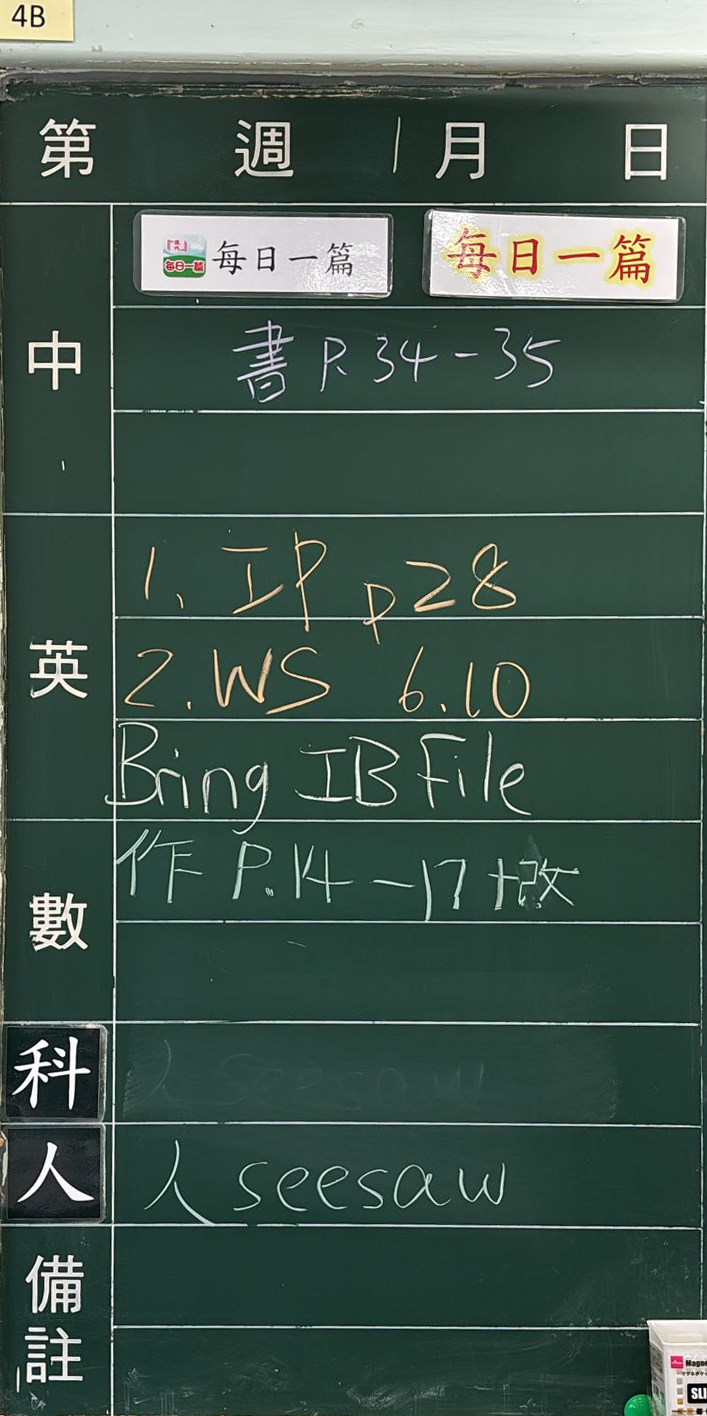 4B
第 週 1月 日
每日一篇 每日一篇 每日一篇
中
書 P. 34-35
英
1. IP p28
2. WS 6.10
Bring IB File
數
作 P.14-17+改
科
人 seesaw
人
人 seesaw
備註
SLI